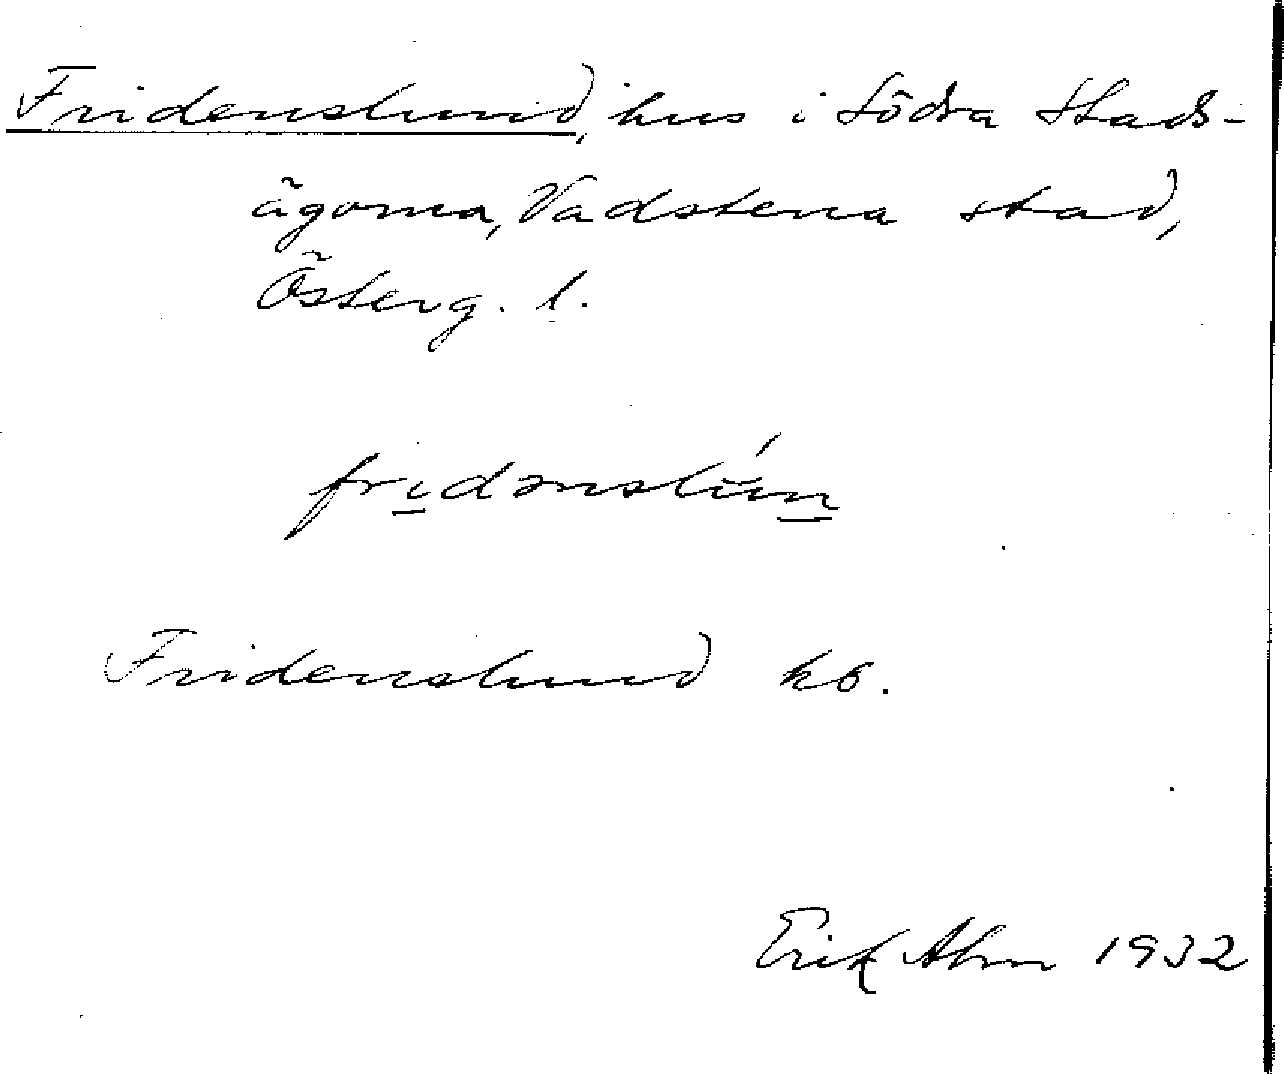 Fridenslund, hus i Södra Stads-
ägorna, Vadstena stad,
Österg. l.
fridənslún
Fridenslund kb.
Erik Ahm 1932